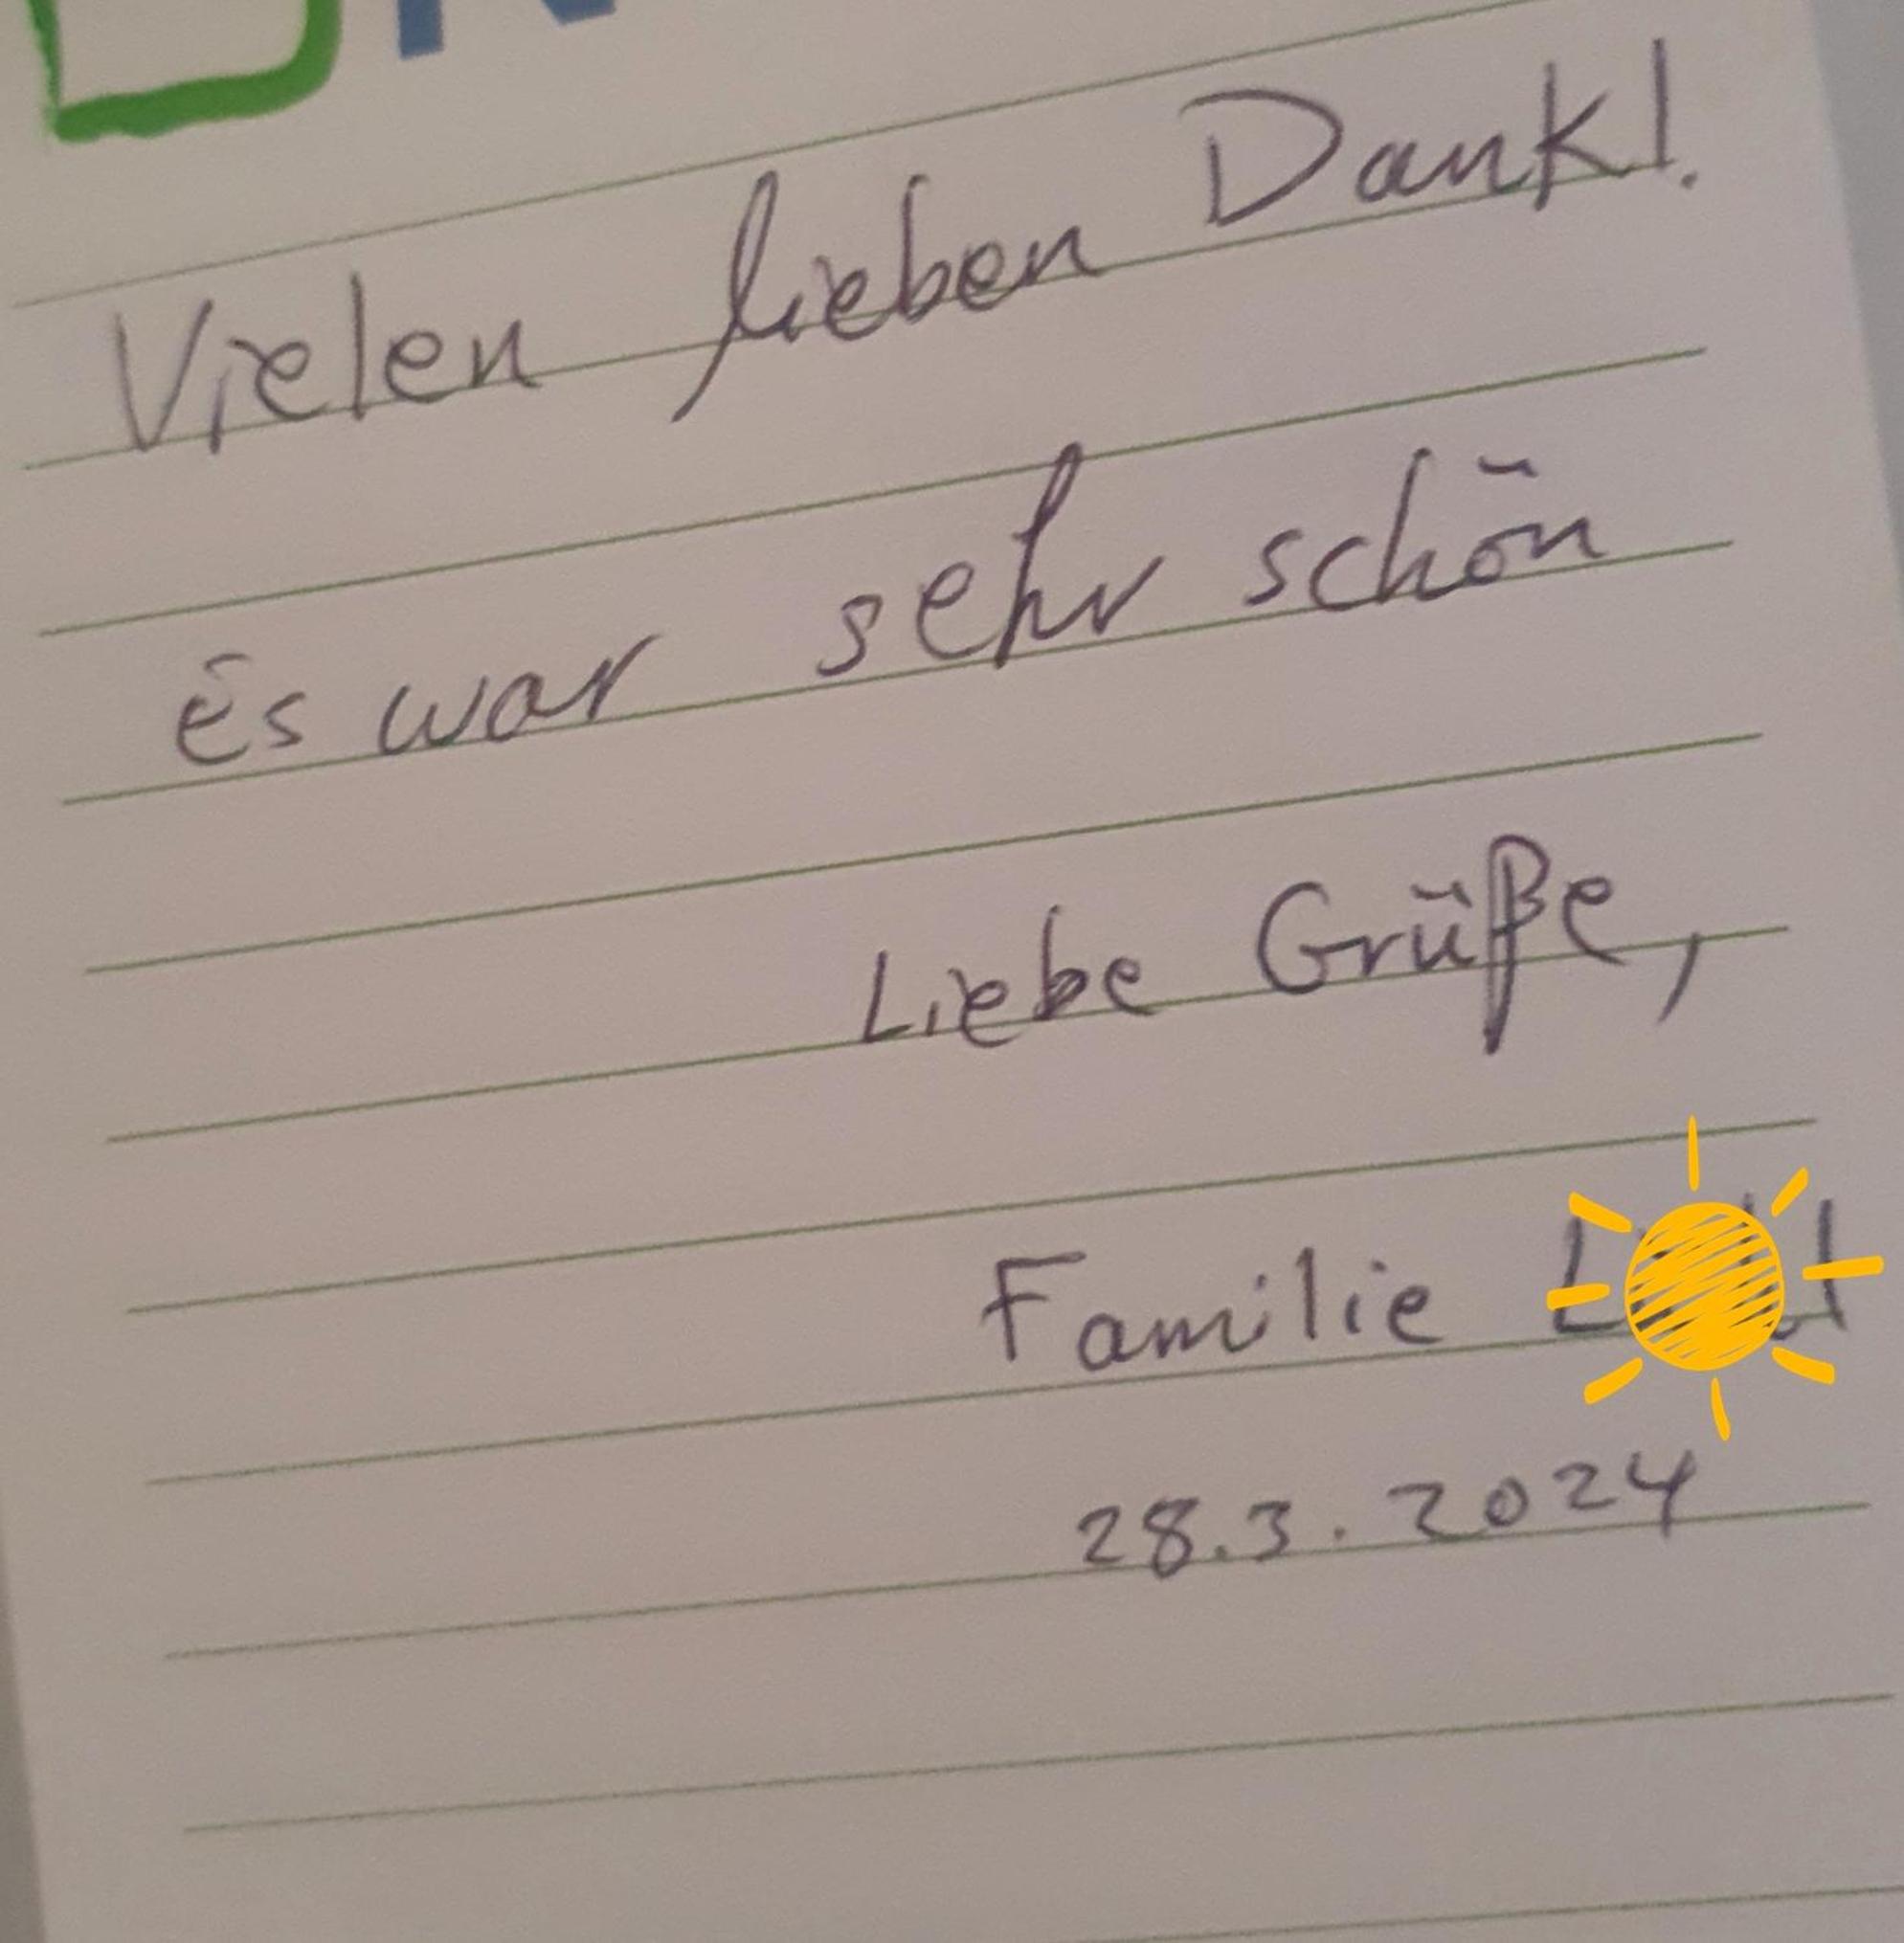 Vielen lieben Dank!
Es war sehr schön
Liebe Grüße,
Familie
28.3.2024